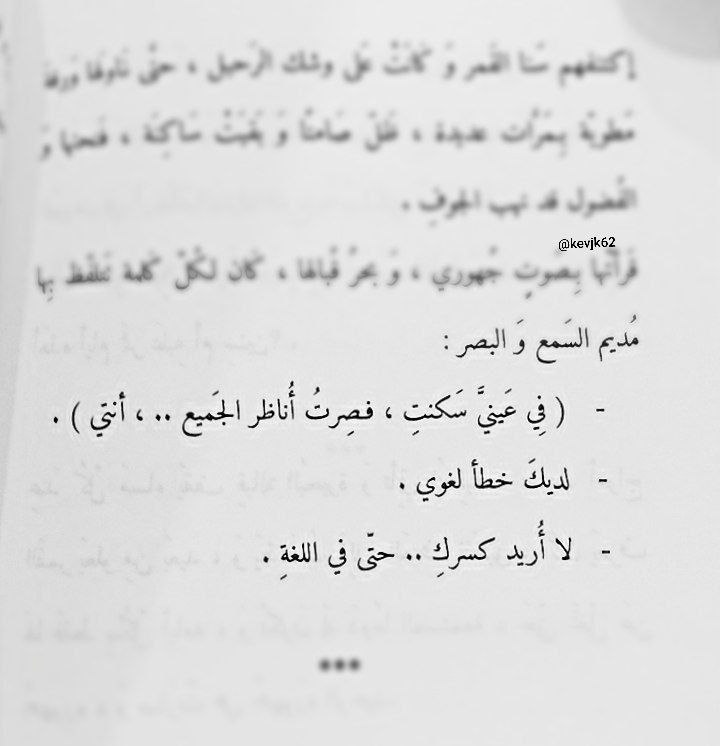 إكتنفهم سَنا القَمر وَ كانَتْ عَلى وشك الرَحيل ، حتّى
مَطويّة بِمَرّات عديدة ، ظَلّ صَامتًا وَ بَقيَتْ سَاكِنَة ، فتحها وَ
الفُضول قد نهب الجوفِ .
@kevjk62
قَرأتها بِصَوتٍ جُهوري ، وَ بحرُ قُبالها ، كَان لكُلّ كَلمة تَتلفّظ بِها
مُديم السَمع وَ البصر :
- ( فِي عَينيَّ سَكنتِ ، فـصِرتُ أُناظر الجَميع .. ، أنتي ) .
- لديكَ خطأ لغوي .
- لا أُريد كسركِ .. حتّى في اللغةِ .
***